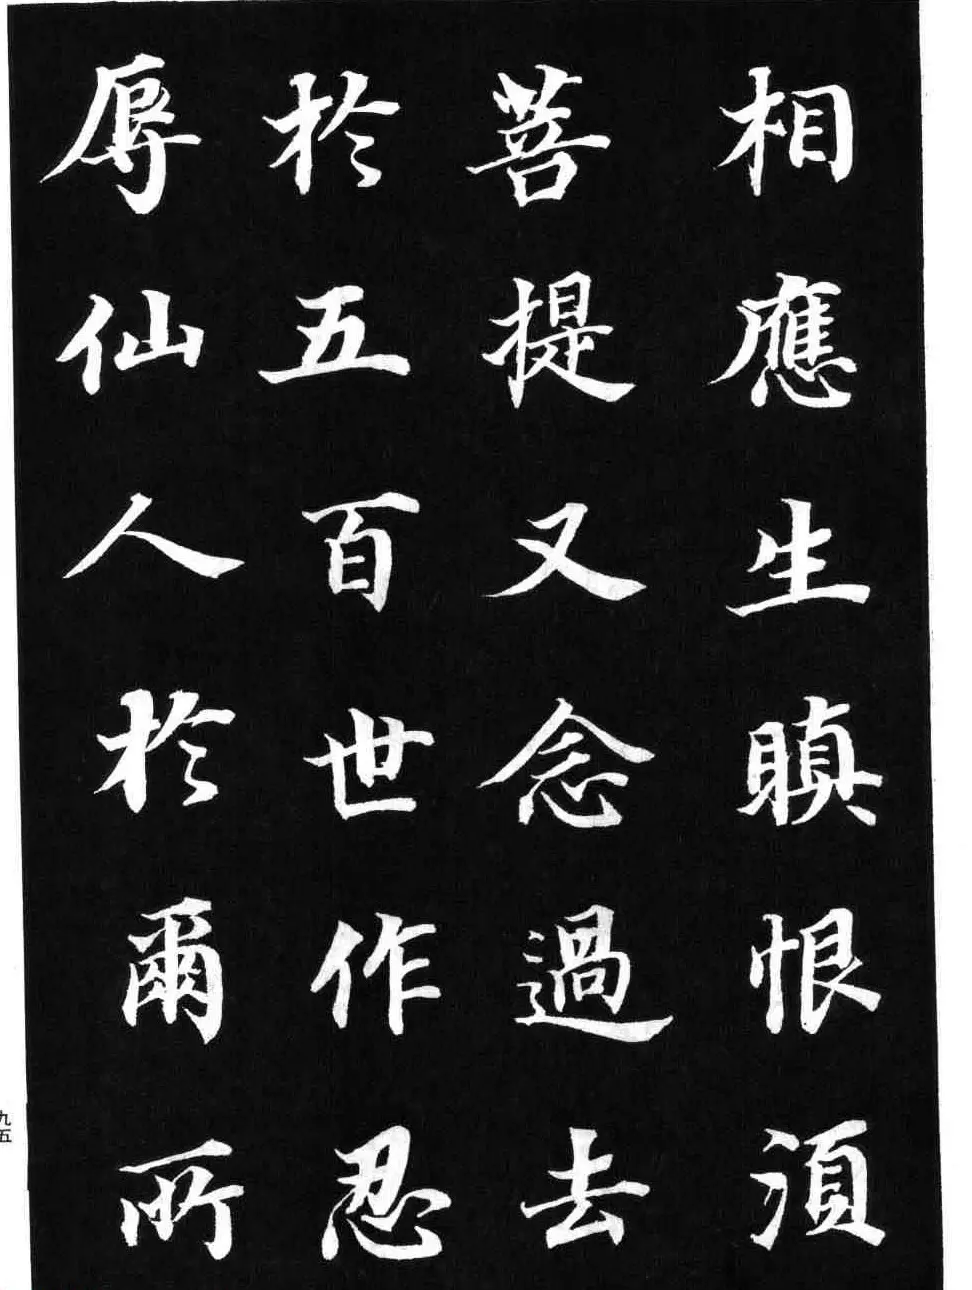 相應生瞋恨須
菩提又念過去
於五百世作忍
辱仙人於爾所
九五